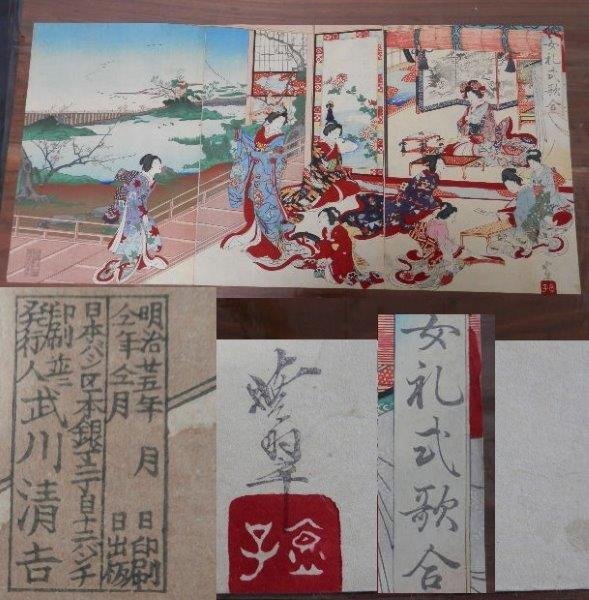 女礼式歌合
明治廿五年 月 日印刷
仝年仝月 日出版
日本バシ区本銀丁二丁目十二バンチ
印刷並ニ
発行人 武川清吉
女礼式歌合